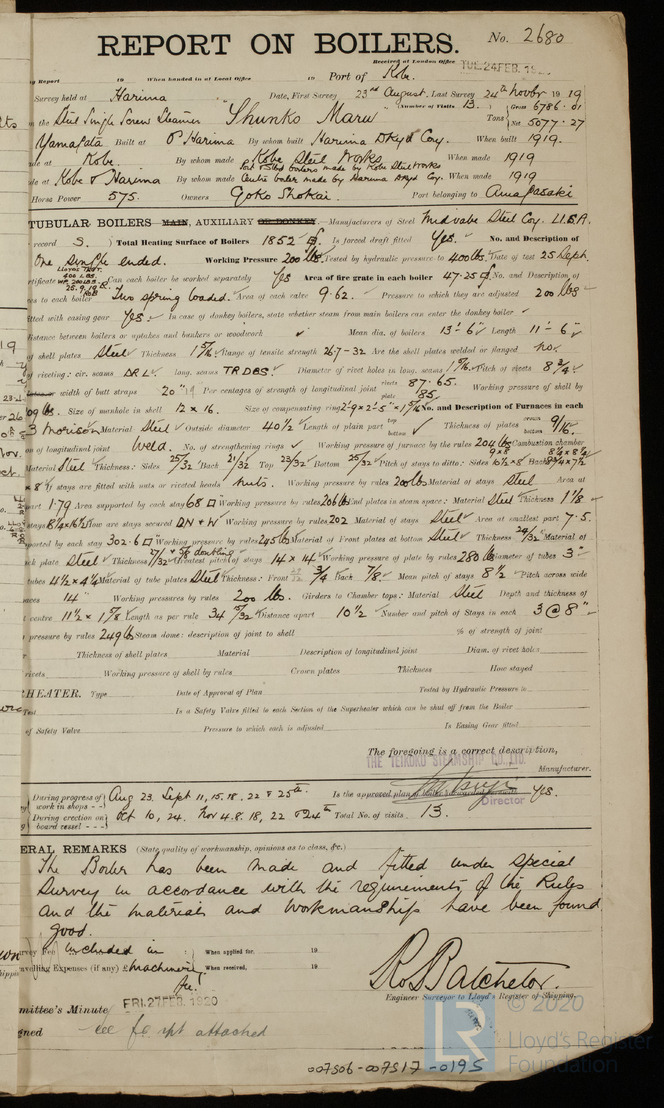 REPORT ON BOILERS. No. 2680
Received at London Office TUE. 24 FEB. 19
Report 19 When handed in at Local Office 19 Port of Kobe.
Survey held at Harima Date, First Survey 23rd August. Last Survey 24th Novbr 1919
(Number of Visits 13.) Gross 6786.01
on the Steel Single Screw Steamer "Shunko Maru" Tons Net 5077.27
Yamagata Built at Harima By whom built Harima Dkyd Coy. When built 1919.
at Kobe. By whom made Kobe Steel Works When made 1919
Port & Stbd boilers made by Kobe Steel Works
at Kobe & Harima By whom made Centre boiler made by Harima Dkyd Coy. When made 1919
Horse Power 575. Owners Goko Shokai. Port belonging to Amagasaki
TUBULAR BOILERS MAIN, AUXILIARY OR DONKEY.—Manufacturers of Steel Midvale Steel Coy. U.S.A.
record S. Total Heating Surface of Boilers 1852 Is forced draft fitted Yes. No. and Description of
One single ended. Working Pressure 200 lbs Tested by hydraulic pressure to 400 lbs. Date of test 25 Sept.
LLOYDS TEST.
400 LBS.
WP. 200 LBS.
25.9.19
Can each boiler be worked separately Yes Area of fire grate in each boiler 47.25 No. and Description of
to each boiler Two spring loaded. Area of each valve 9.62. Pressure to which they are adjusted 200 lbs
fitted with easing gear Yes. In case of donkey boilers, state whether steam from main boilers can enter the donkey boiler
distance between boilers or uptakes and bunkers or woodwork Mean dia. of boilers 13'-6" Length 11'-6"
of shell plates Steel Thickness 1 5/16 Range of tensile strength 26.7-32 Are the shell plates welded or flanged no.
of riveting: cir. seams DRL long. seams TRDBS. Diameter of rivet holes in long. seams 1 5/16 Pitch of rivets 8 3/4
width of butt straps 20" Per centages of strength of longitudinal joint rivets 87.65. plate 85. Working pressure of shell by
Size of manhole in shell 12 x 16. Size of compensating ring No. and Description of Furnaces in each
3 Morison Material Steel Outside diameter 40 1/2 Length of plain part top bottom Thickness of plates crown bottom 9/16.
of longitudinal joint Weld. No. of strengthening rings Working pressure of furnace by the rules 204 lbs Combustion chamber
Material Steel Thickness: Sides 25/32 Back 21/32 Top 23/32 Bottom 25/32 Pitch of stays to ditto: Sides 10 1/2 x 8 Back
If stays are fitted with nuts or riveted heads Nuts. Working pressure by rules 200 lbs Material of stays Steel Area at
part 1.79 Area supported by each stay 68 Working pressure by rules 206 lbs End plates in steam space: Material Steel Thickness 1 1/8
stays How are stays secured DN & W Working pressure by rules 202 Material of stays Steel Area at smallest part 7.5.
supported by each stay 302.6 Working pressure by rules 245 lbs Material of Front plates at bottom Steel Thickness 29/32 Material of
plate Steel Thickness 27/32 + 5/8 doubling Greatest pitch of stays 14 x 14 Working pressure of plate by rules 280 lbs Diameter of tubes 3"
tubes 4 1/2 x 4 1/4 Material of tube plates Steel Thickness: Front 3/4 Back 7/8 Mean pitch of stays 8 1/2 Pitch across wide
14" Working pressures by rules 200 lbs. Girders to Chamber tops: Material Steel Depth and thickness of
centre 11 1/2 x 1 5/8 Length as per rule 34 15/32 Distance apart 10 1/2 Number and pitch of Stays in each 3 @ 8"
pressure by rules 249 lbs Steam dome: description of joint to shell % of strength of joint
Thickness of shell plates Material Description of longitudinal joint Diam. of rivet holes
rivets Working pressure of shell by rules Crown plates Thickness How stayed
HEATER. Type Date of Approval of Plan Tested by Hydraulic Pressure to
Test Is a Safety Valve fitted to each Section of the Superheater which can be shut off from the Boiler
of Safety Valve Pressure to which each is adjusted Is Easing Gear fitted
The foregoing is a correct description,
THE TEIKOKU STEAMSHIP CO., LTD. Manufacturer.
Director
During progress of work in shops - - Aug 23. Sept 11, 15. 18. 22 & 25th. Is the approved plan Yes.
During erection on board vessel - - - Oct 10, 24. Nov 4. 8. 18, 22 & 24th Total No. of visits 13.
GENERAL REMARKS (State quality of workmanship, opinions as to class, &c.)
The Boiler has been made and fitted under special
Survey in accordance with the requirements of the Rules
and the materials and workmanship have been found
good.
Survey Fee included in When applied for, 19
Travelling Expenses (if any) £ machinery fee. When received, 19
R. S. Batchelor.
Engineer Surveyor to Lloyd's Register of Shipping.
Committee's Minute FRI. 27 FEB. 1920
See fe rpt attached
© 2020
LR Lloyd's Register
Foundation
007506-007517-0195